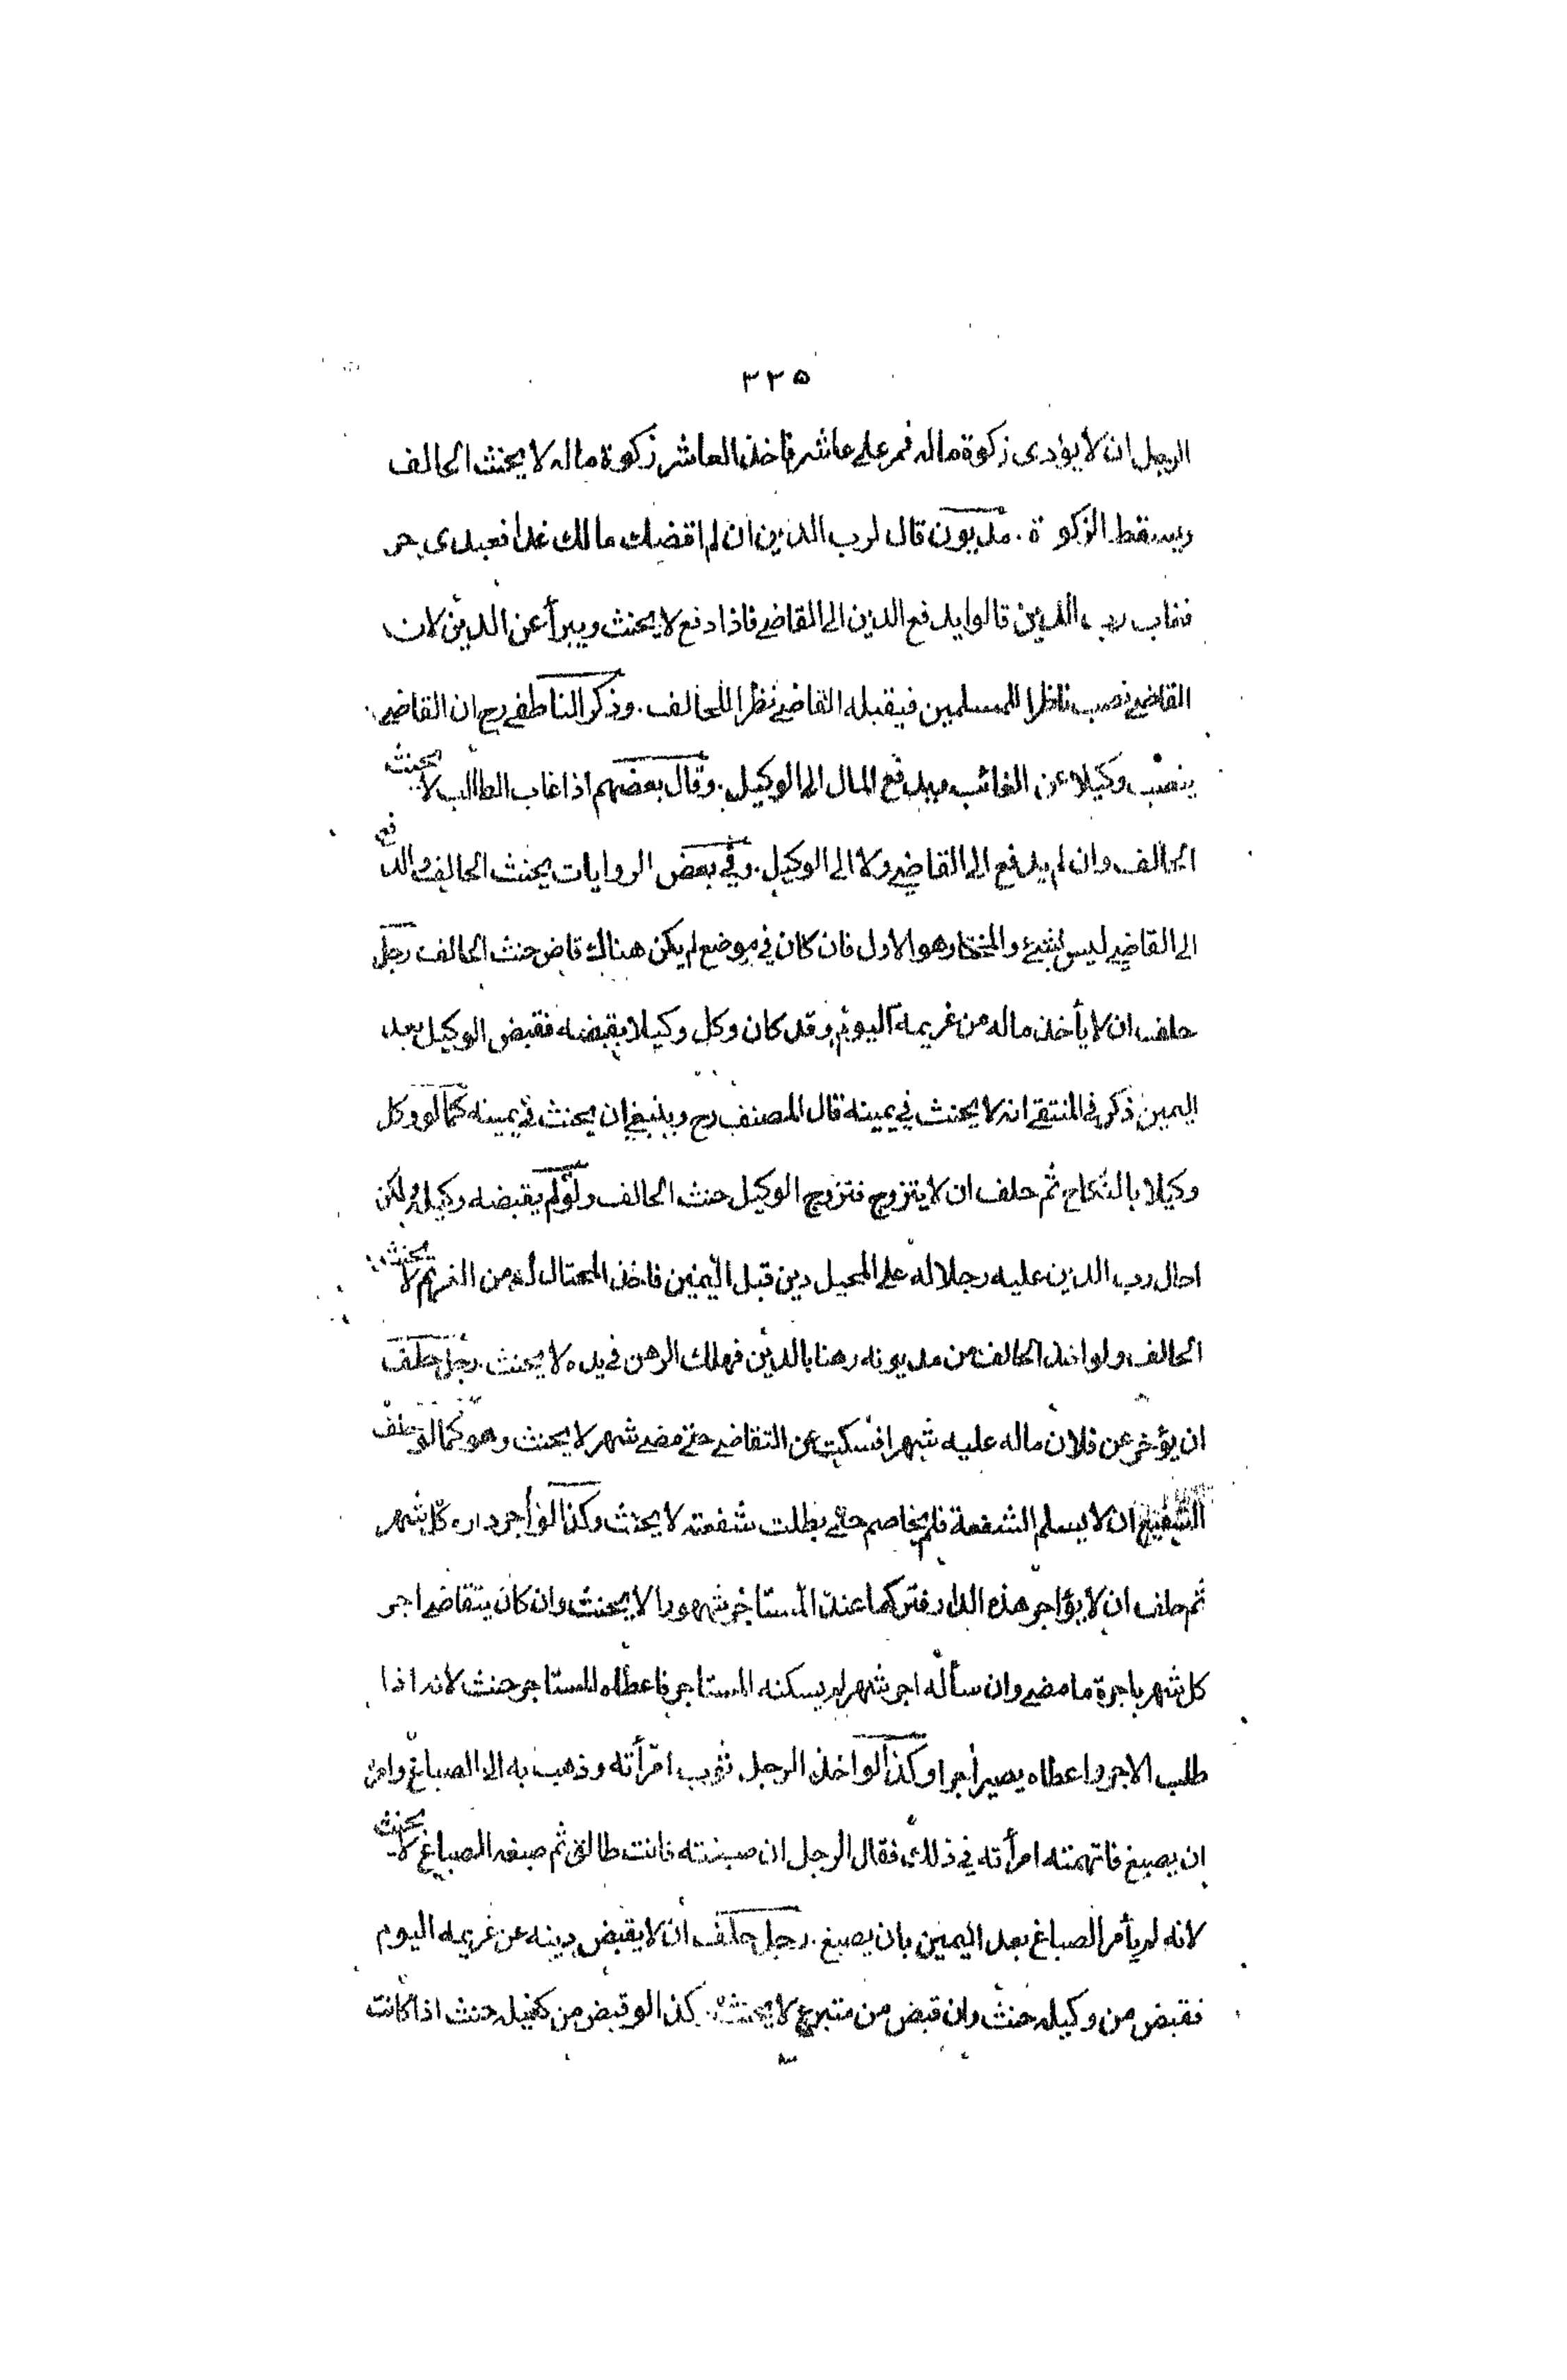 ٣٣٥
الرجل ان لا يؤدى زكوة ماله فمر على عاشر فاخذ العاشر زكوة ماله لا يحنث الحالف
ويسقط الزكوة . مديون قال لرب الدين ان لم اقضك مالك غدا فعبدى حر
فغاب رب الدين قالوا يدفع الدين الى القاضي فاذا دفع لا يحنث ويبرأ عن الدين لان
القاضي نصب ناظرا للمسلمين فيقبله القاضي نظرا للحالف . وذكر الناطفي رح ان القاضي
ينصب وكيلا عن الغائب ويدفع المال الى الوكيل . وقال بعضهم اذا غاب الطالب لا يحنث
الحالف وان لم يدفع الى القاضي ولا الى الوكيل . وفي بعض الروايات يحنث الحالف والدفع
الى القاضي ليس بشئ والمختار هو الاول فان كان في موضع لم يكن هناك قاض حنث الحالف رجل
حلف ان لا يأخذ ماله من غريمه اليوم وقد كان وكل وكيلا بقبضه فقبض الوكيل بعد
اليمين ذكر في المنتقى انه لا يحنث في يمينه قال المصنف رح وينبغي ان يحنث في يمينه كما لو وكل
وكيلا بالنكاح ثم حلف ان لا يتزوج فتزوج الوكيل حنث الحالف ولو لم يقبضه وكيله ولكن
احال رب الدين عليه رجلا له على المحيل دين قبل اليمين فاخذ المحتال له من الغريم لا يحنث
الحالف ولو اخذ الحالف من مديونه رهنا بالدين فهلك الرهن في يده لا يحنث . رجل حلف
ان يؤخر عن فلان ماله عليه شهرا فسكت عن التقاضي حتى مضى شهر لا يحنث وهو كما لو حلف
الشفيع ان لا يسلم الشفعة فلم يخاصم حتى بطلت شفعته لا يحنث وكذا لو أجر داره كل شهر
ثم حلف ان لا يؤاجر هذه الدار فتركها عند المستاجر شهورا لا يحنث وان كان يتقاضى اجر
كل شهر باجرة ما مضى وان سأله اجر شهر لم يسكنه المستاجر فاعطاه المستاجر حنث لانه اذا
طلب الاجر واعطاه يصير أجرا وكذا لو اخذ الرجل ثوب امرأته وذهب به الى الصباغ وامره
ان يصبغ فاتهمته امرأته في ذلك فقال الرجل ان صبغته فانت طالق ثم صبغه الصباغ لا يحنث
لانه لم يأمر الصباغ بعد اليمين بان يصبغ . رجل حلف ان لا يقبض دينه عن غريمه اليوم
فقبض من وكيله حنث وان قبض من متبرع لا يحنث . كذا لو قبض من كفيله حنث اذا كانت